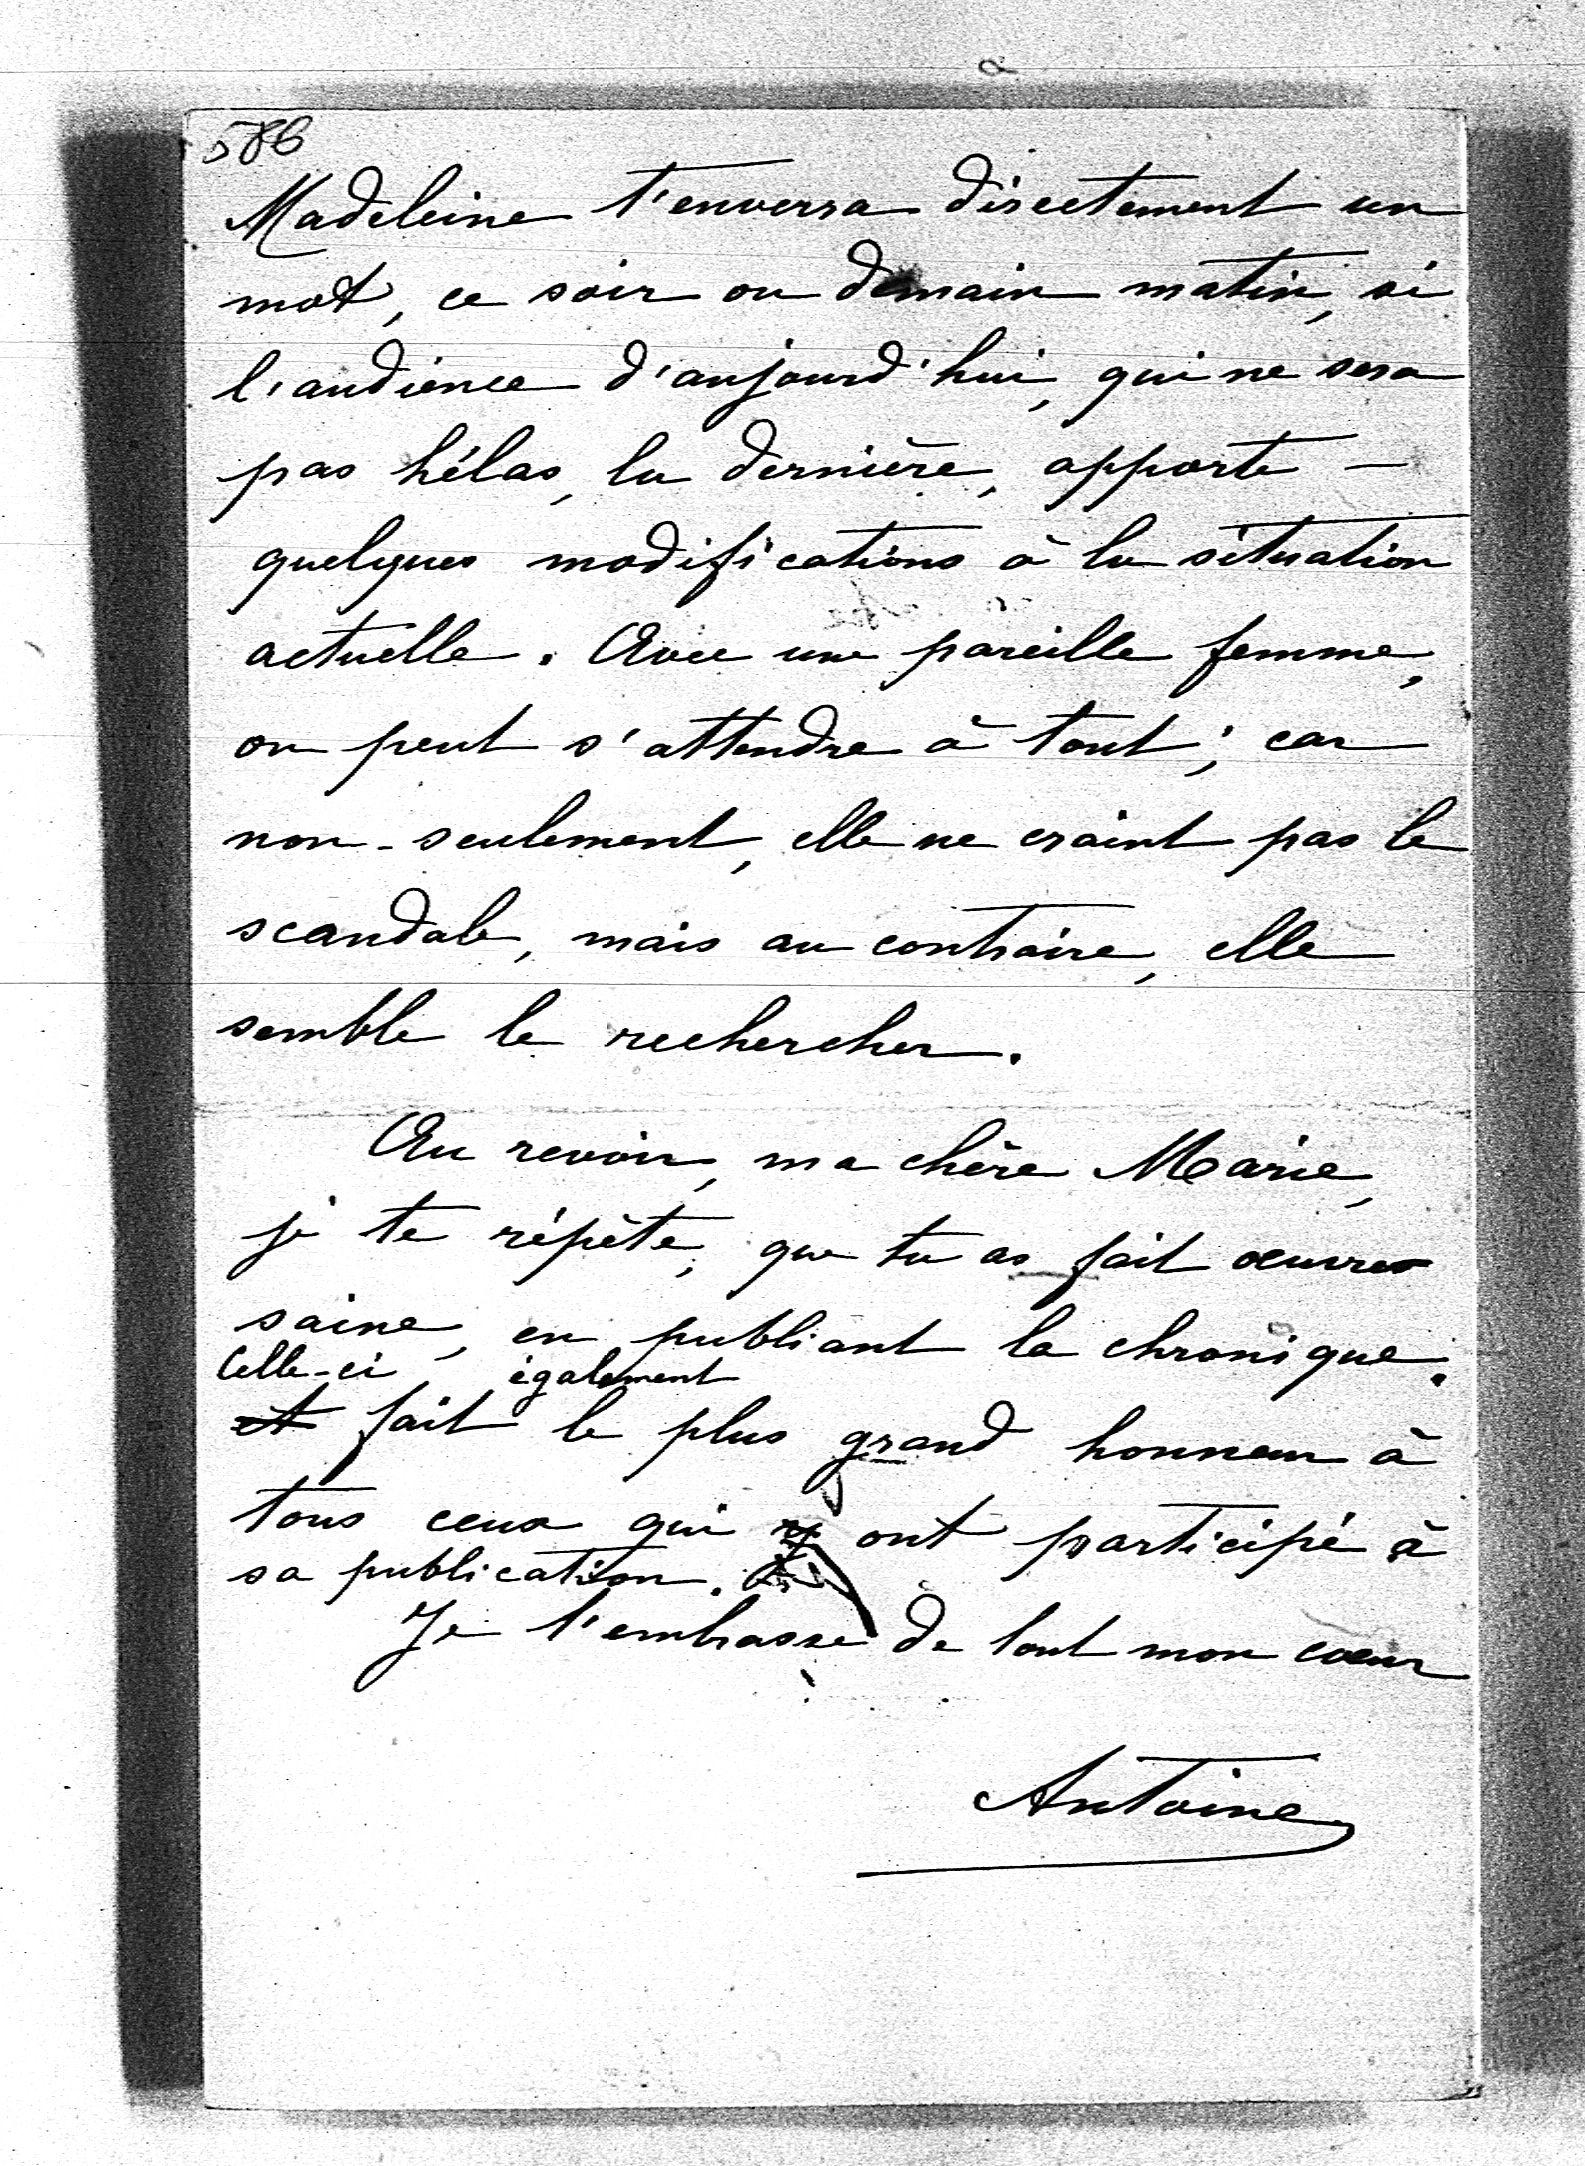 586
Madeleine t'enverra directement un
mot, ce soir ou demain matin, si
l'audience d'aujourd'hui, qui ne sera
pas hélas, la dernière, apporte –
quelques modifications à la situation
actuelle. Avec une pareille femme,
on peut s'attendre à tout; car
non-seulement, elle ne craint pas le
scandale, mais au contraire, elle
semble le rechercher.
Au revoir, ma chère Marie,
je te répète, que tu as fait œuvre
saine, en publiant la chronique.
Celle-ci, également
et fait le plus grand honneur à
tous ceux qui y ont participé à
sa publication.
Je t'embrasse de tout mon cœur
Antoine